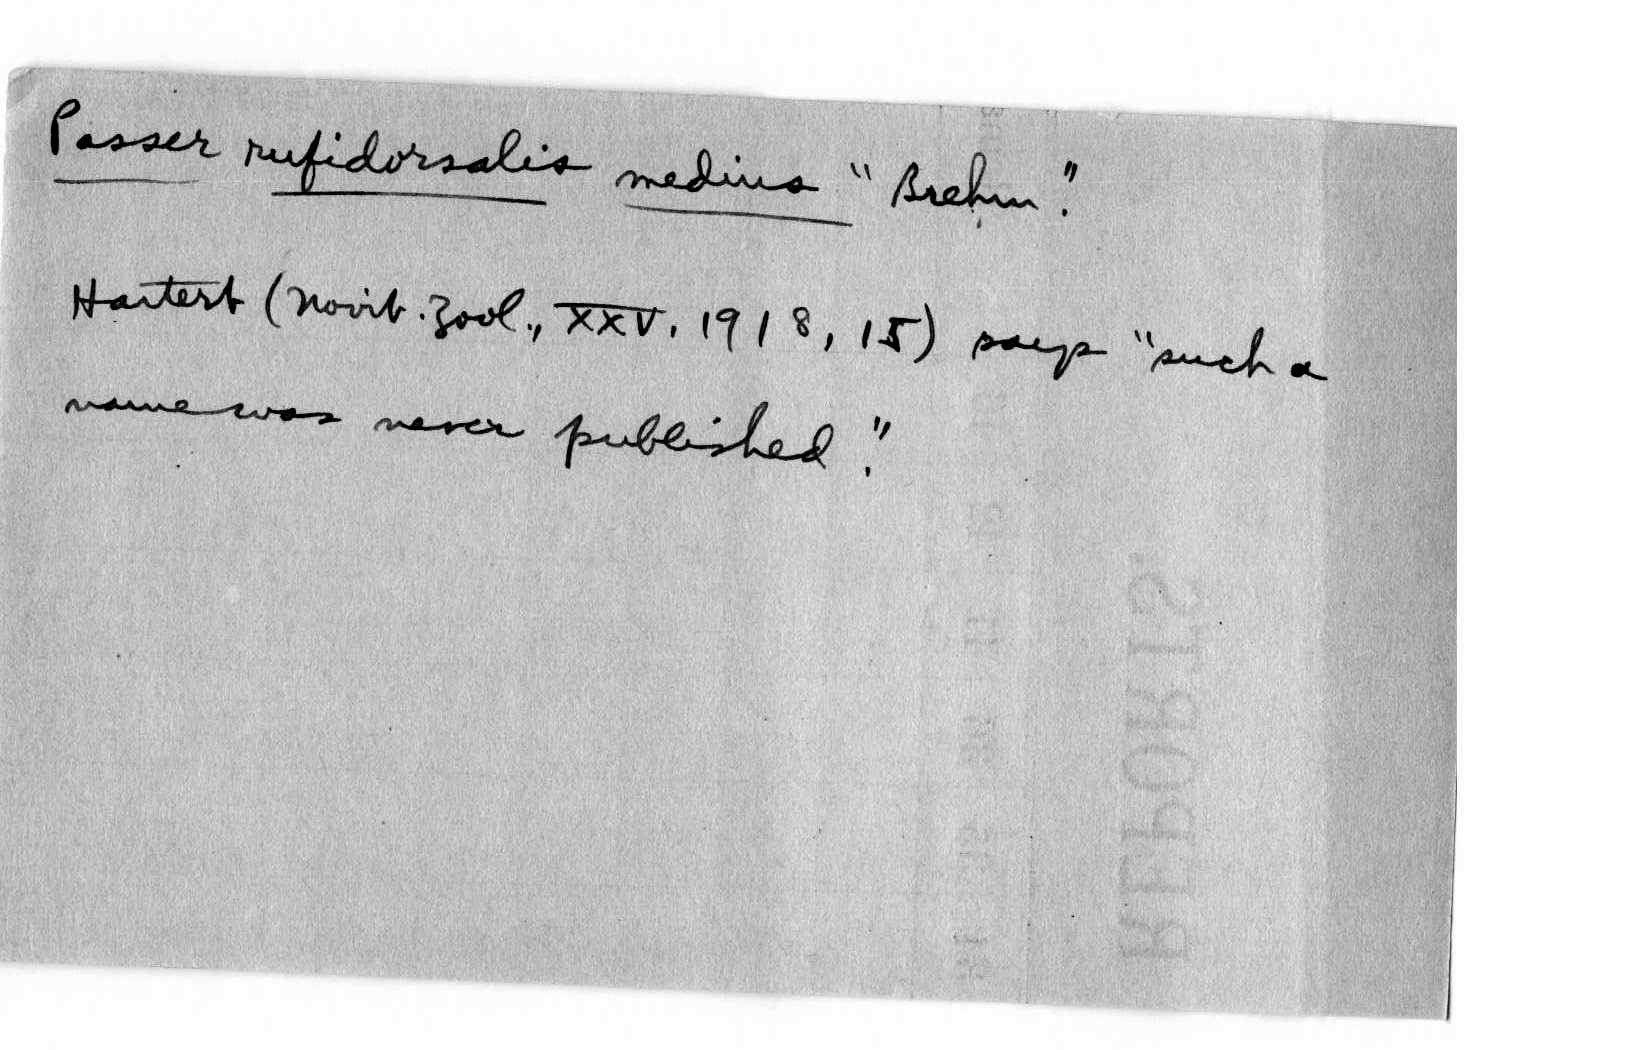 Passer rufidorsalis medius "Brehm".
Hartert (Novit. Zool., XXV, 1918, 15) says "such a
name was never published".
REPORTS.